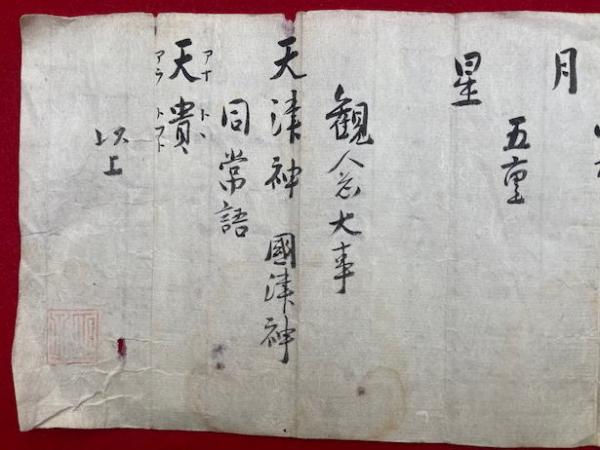 月
五重
星
觀念大事
天津神 國津神
同常語
アナ トヽ
天貴
アラ トフト
以上